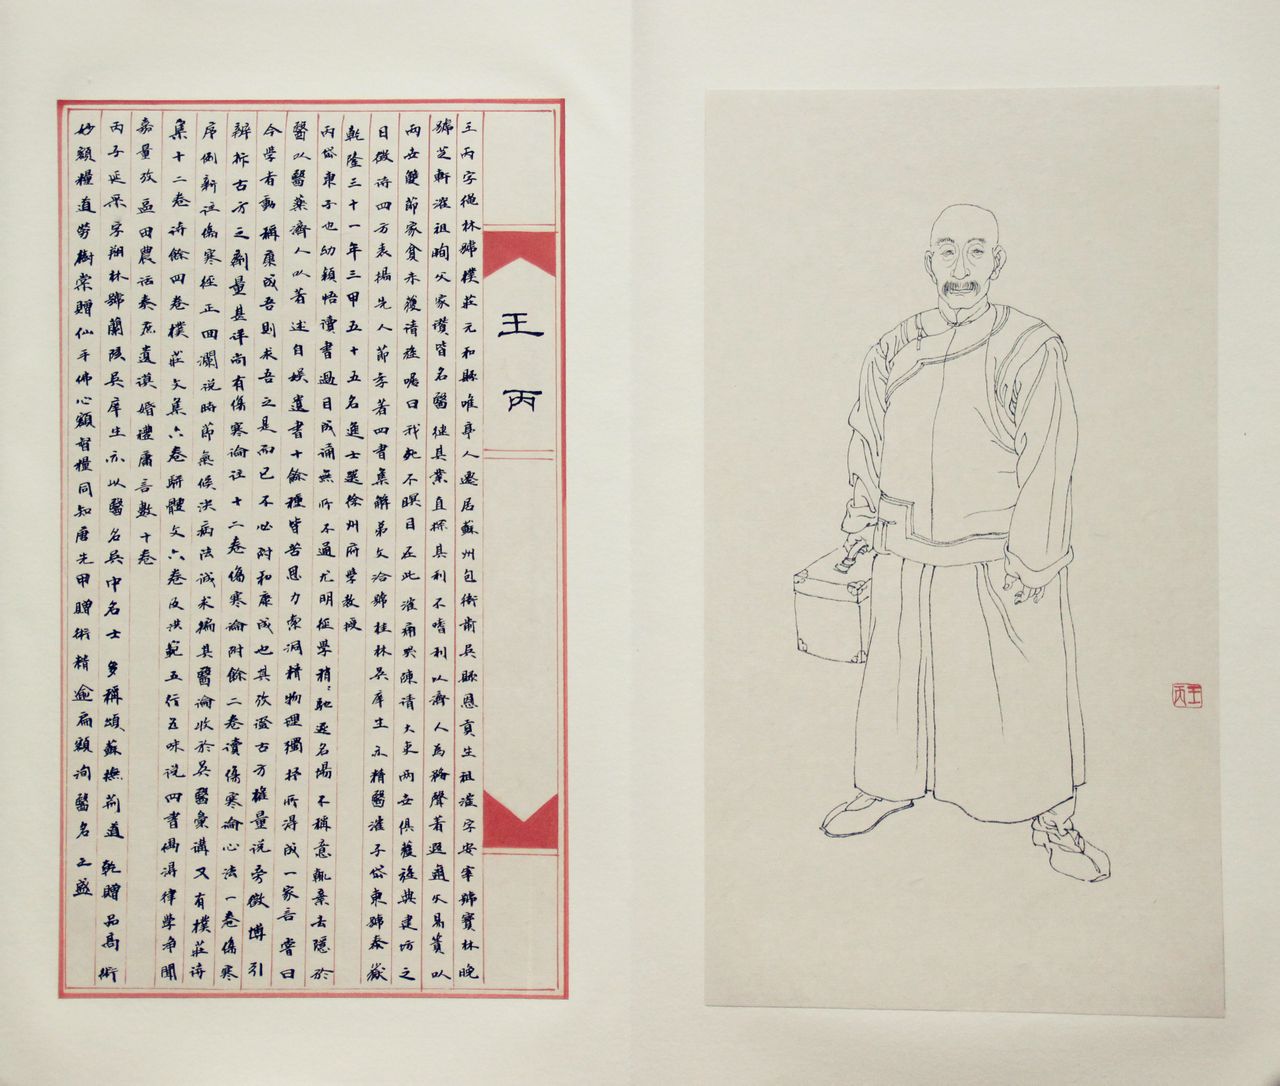 王丙
王丙字繩林號樸莊元和縣唯亭人遷居蘇州包衙前吳縣恩貢生祖漼字安宰號寶林晚
號芝軒漼祖珣父家瓚皆名醫繼其業直探其利不嗜利以濟人為務聲著遐邇父易簀以
兩世雙節家貧未獲請旌囑曰我死不瞑目在此漼痛哭陳請大吏兩世俱獲旌典建坊之
日徵詩四方表揚先人節孝著四書集解弟文洽號桂林吳庠生亦精醫漼子岱東號泰嶽
乾隆三十一年三甲五十五名進士選徐州府學教授
丙岱東子也幼穎悟讀書過目成誦無所不通尤明經學稍〻馳逐名場不稱意輒棄去隱於
醫以醫藥濟人以著述自娛遺書十餘種皆苦思力索洞精物理獨抒所得成一家言嘗曰
今學者動稱康成吾則求吾之是而已不必附和康成也其攷證古方權量說旁徵博引
辨析古方之劑量甚詳尚有傷寒論注十二卷傷寒論附餘二卷讀傷寒論心法一卷傷寒
序例新註傷寒經正回瀾說時節氣候決病法誠求編其醫論收於吳醫彙講又有樸莊詩
集十二卷詩餘四卷樸莊文集六卷駢體文六卷及洪範五行五味說四書偶得律學淨聞
嘉量攷區田農話泰庶遺謨婚禮庸言數十卷
丙子延杲字翔林號蘭陔吳庠生亦以醫名吳中名士多稱頌蘇撫荊道乾贈品高術
妙額糧道勞樹棠贈仙手佛心額督糧同知唐先甲贈術精逾扁額洵醫名之盛
王丙